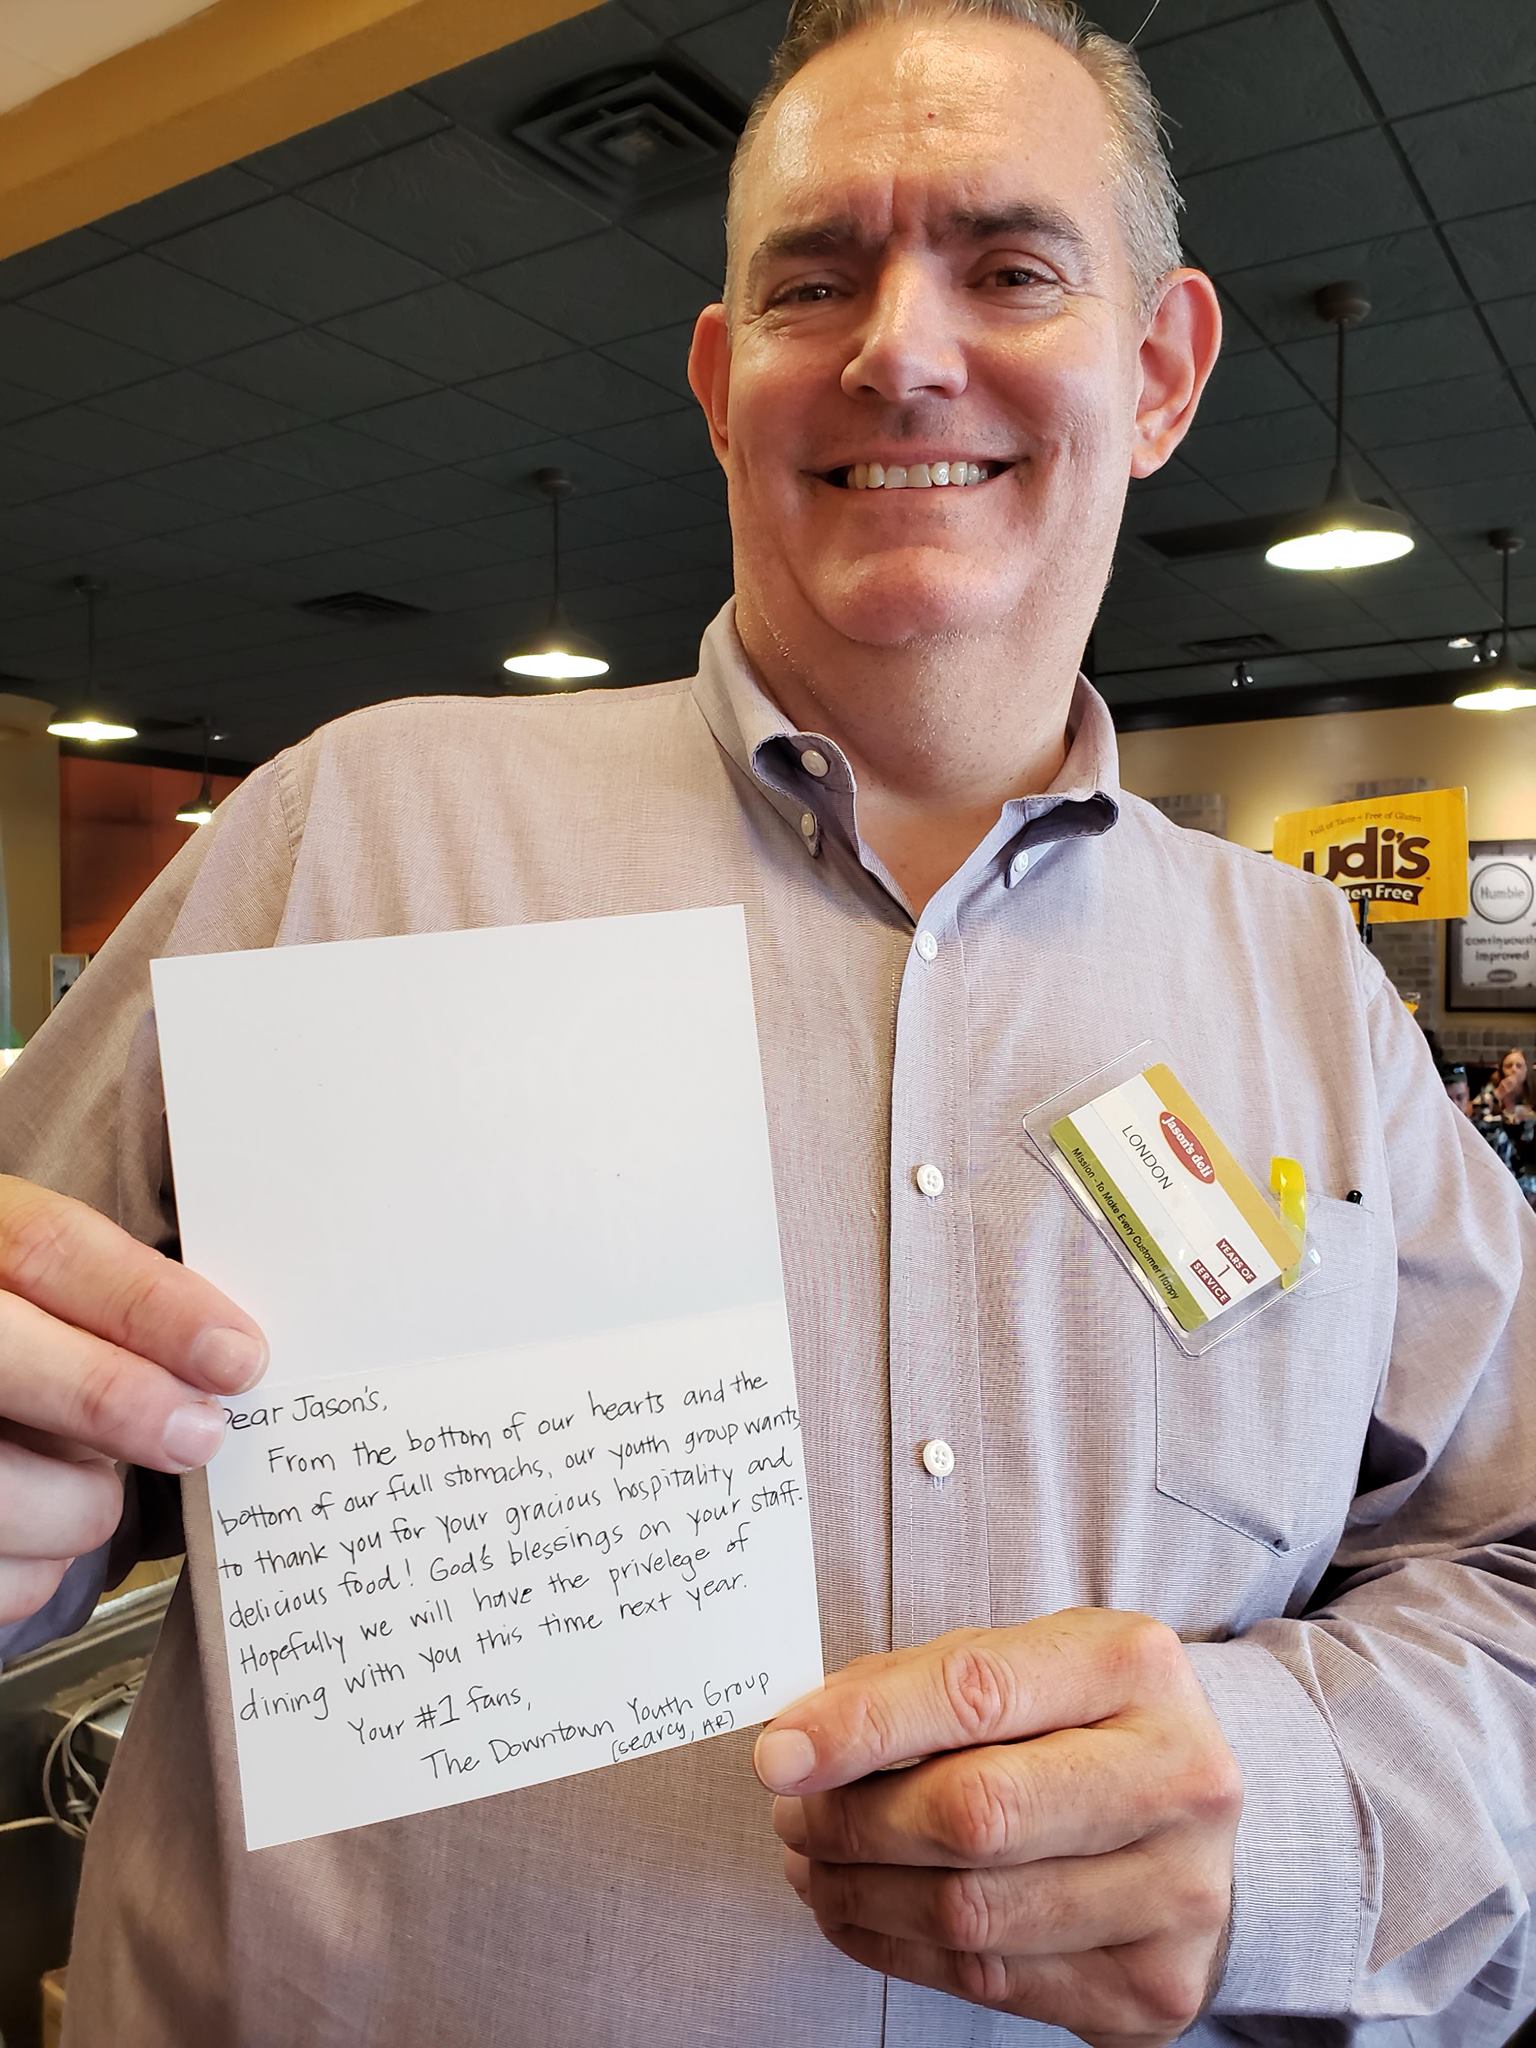 Full of Taste • Free of Gluten
udi's
Free
Humble
continuously
improved
Jason's deli
LONDON
YEARS OF
1
SERVICE
Mission - To Make Every Customer Happy
Dear Jason's,
From the bottom of our hearts and the
bottom of our full stomachs, our youth group wants
to thank you for your gracious hospitality and
delicious food! God's blessings on your staff.
Hopefully we will have the privelege of
dining with you this time next year.
Your #1 fans,
The Downtown Youth Group
(Searcy, AR)